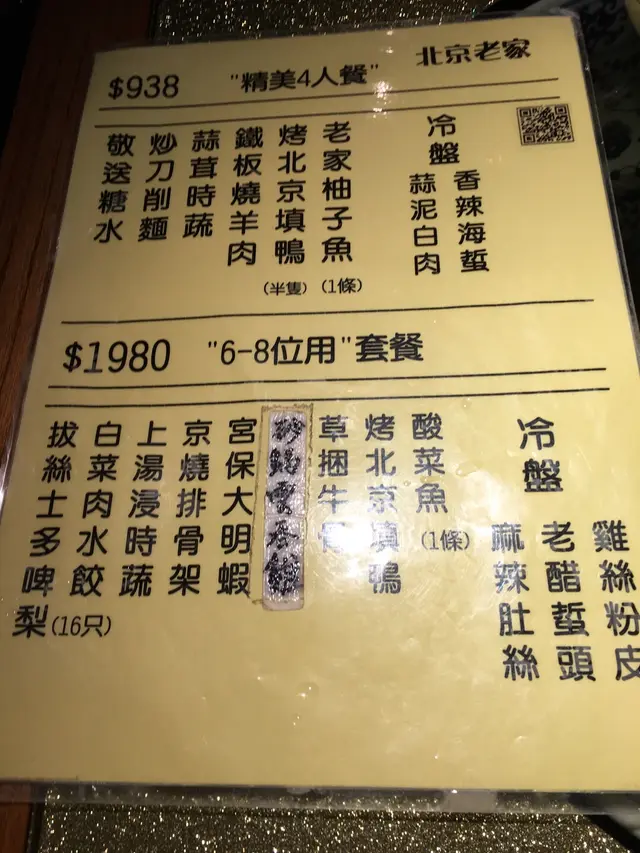 北京老家
$938 "精美4人餐"
冷盤
香辣海蜇
蒜泥白肉
老家柚子魚(1條)
烤北京填鴨(半隻)
鐵板燒羊肉
蒜茸時蔬
炒刀削麵
敬送糖水
$1980 "6-8位用"套餐
冷盤
雞絲粉皮
老醋蜇頭
麻辣肚絲
酸菜魚(1條)
烤北京填鴨
草捆牛骨
宮保大明蝦
京燒排骨架
上湯浸時蔬
白菜肉水餃(16只)
拔絲士多啤梨